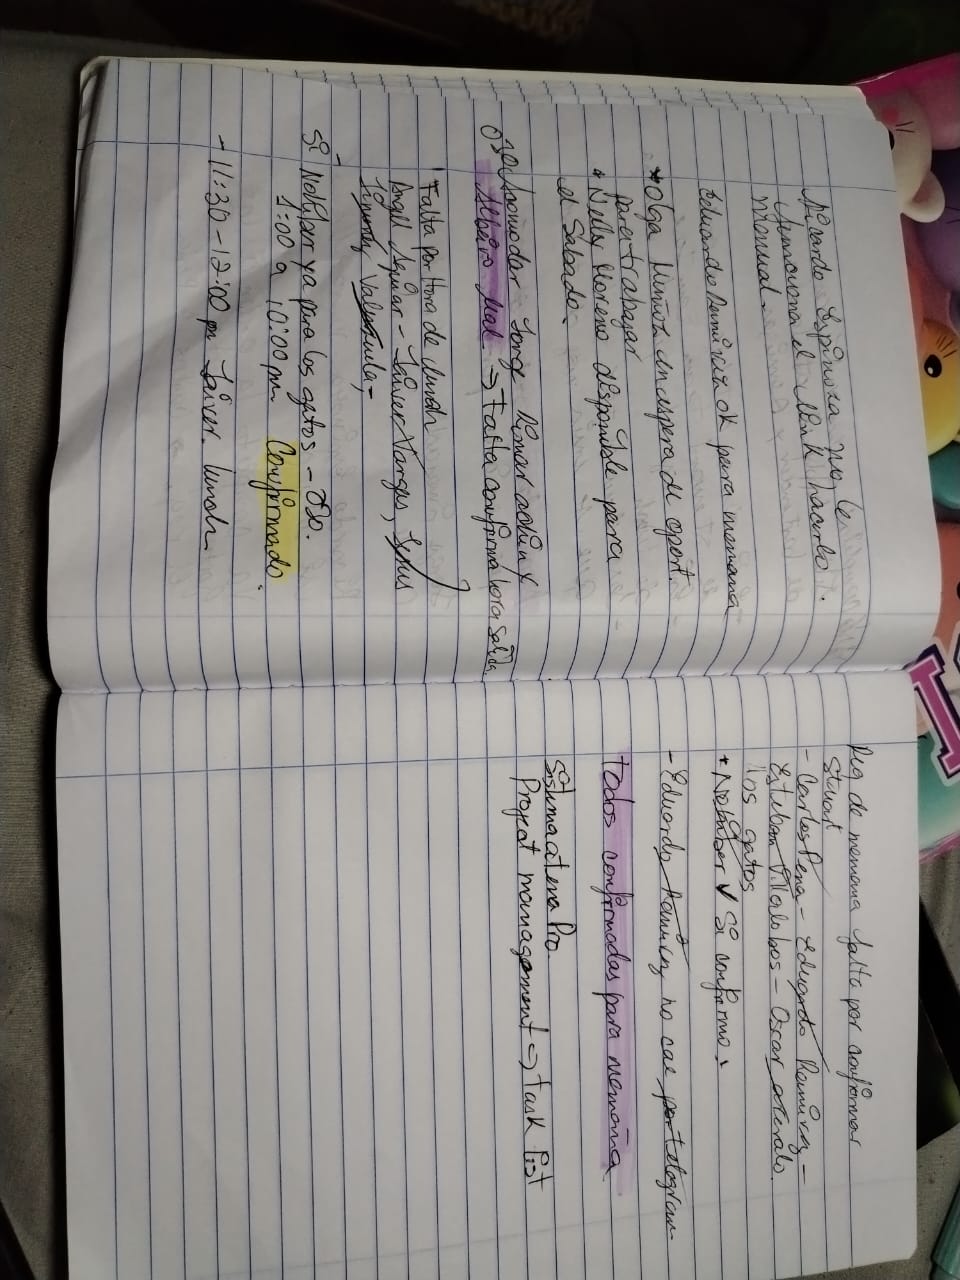 Ricardo Espinoza no le
funciona el link hacerlo
manual.
Eduardo Ramirez ok para manana
* Olga Munoz en espera de oport.
para trabajar
* Nelly Moreno disponible para
el Sabado.
Jorge
Falta confirma hora salida
* Falta por Hora de lunch
Angel Aguilar - Javier Vargas, Jesus
Valenzuela -
Si Notificar ya para los gatos - Ok.
1:00 a 10:00 pm Confirmado.
- 11:30 - 12:00 pm Javier. lunch
de manana falta por confirmar
Stuart
- Carlos Pena - Eduardo Ramirez -
Esteban Villalobos - Oscar
los gatos
* ✓ Si confirmo.
- Eduardo Ramirez no cae por telegram
todos confirmadas para manana
Sistema atena Pro.
Project management → Task list